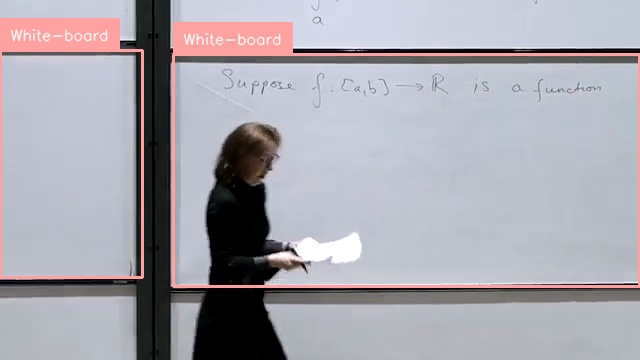 a
White-board
White-board
Suppose f: [a,b] → ℝ is a function